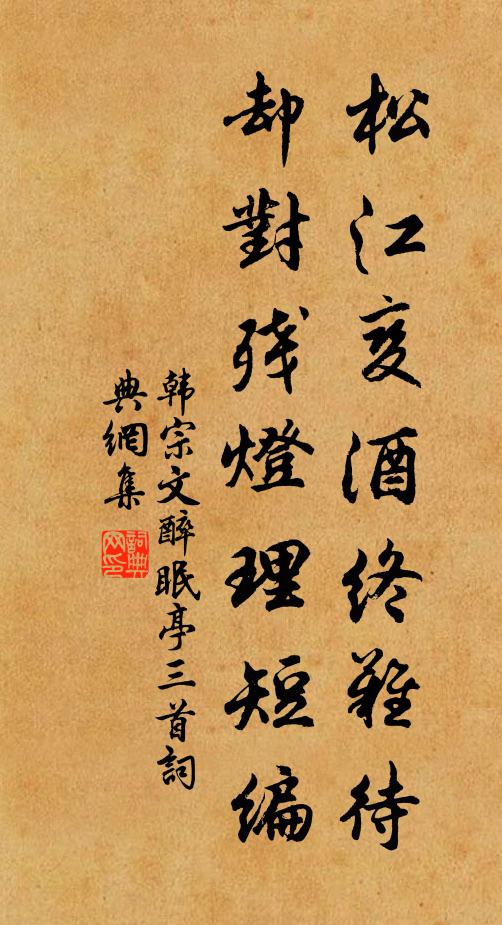 松江变酒终難待
却對残燈理短編
韩宗文醉眠亭三首詞
典網集
詞典网印